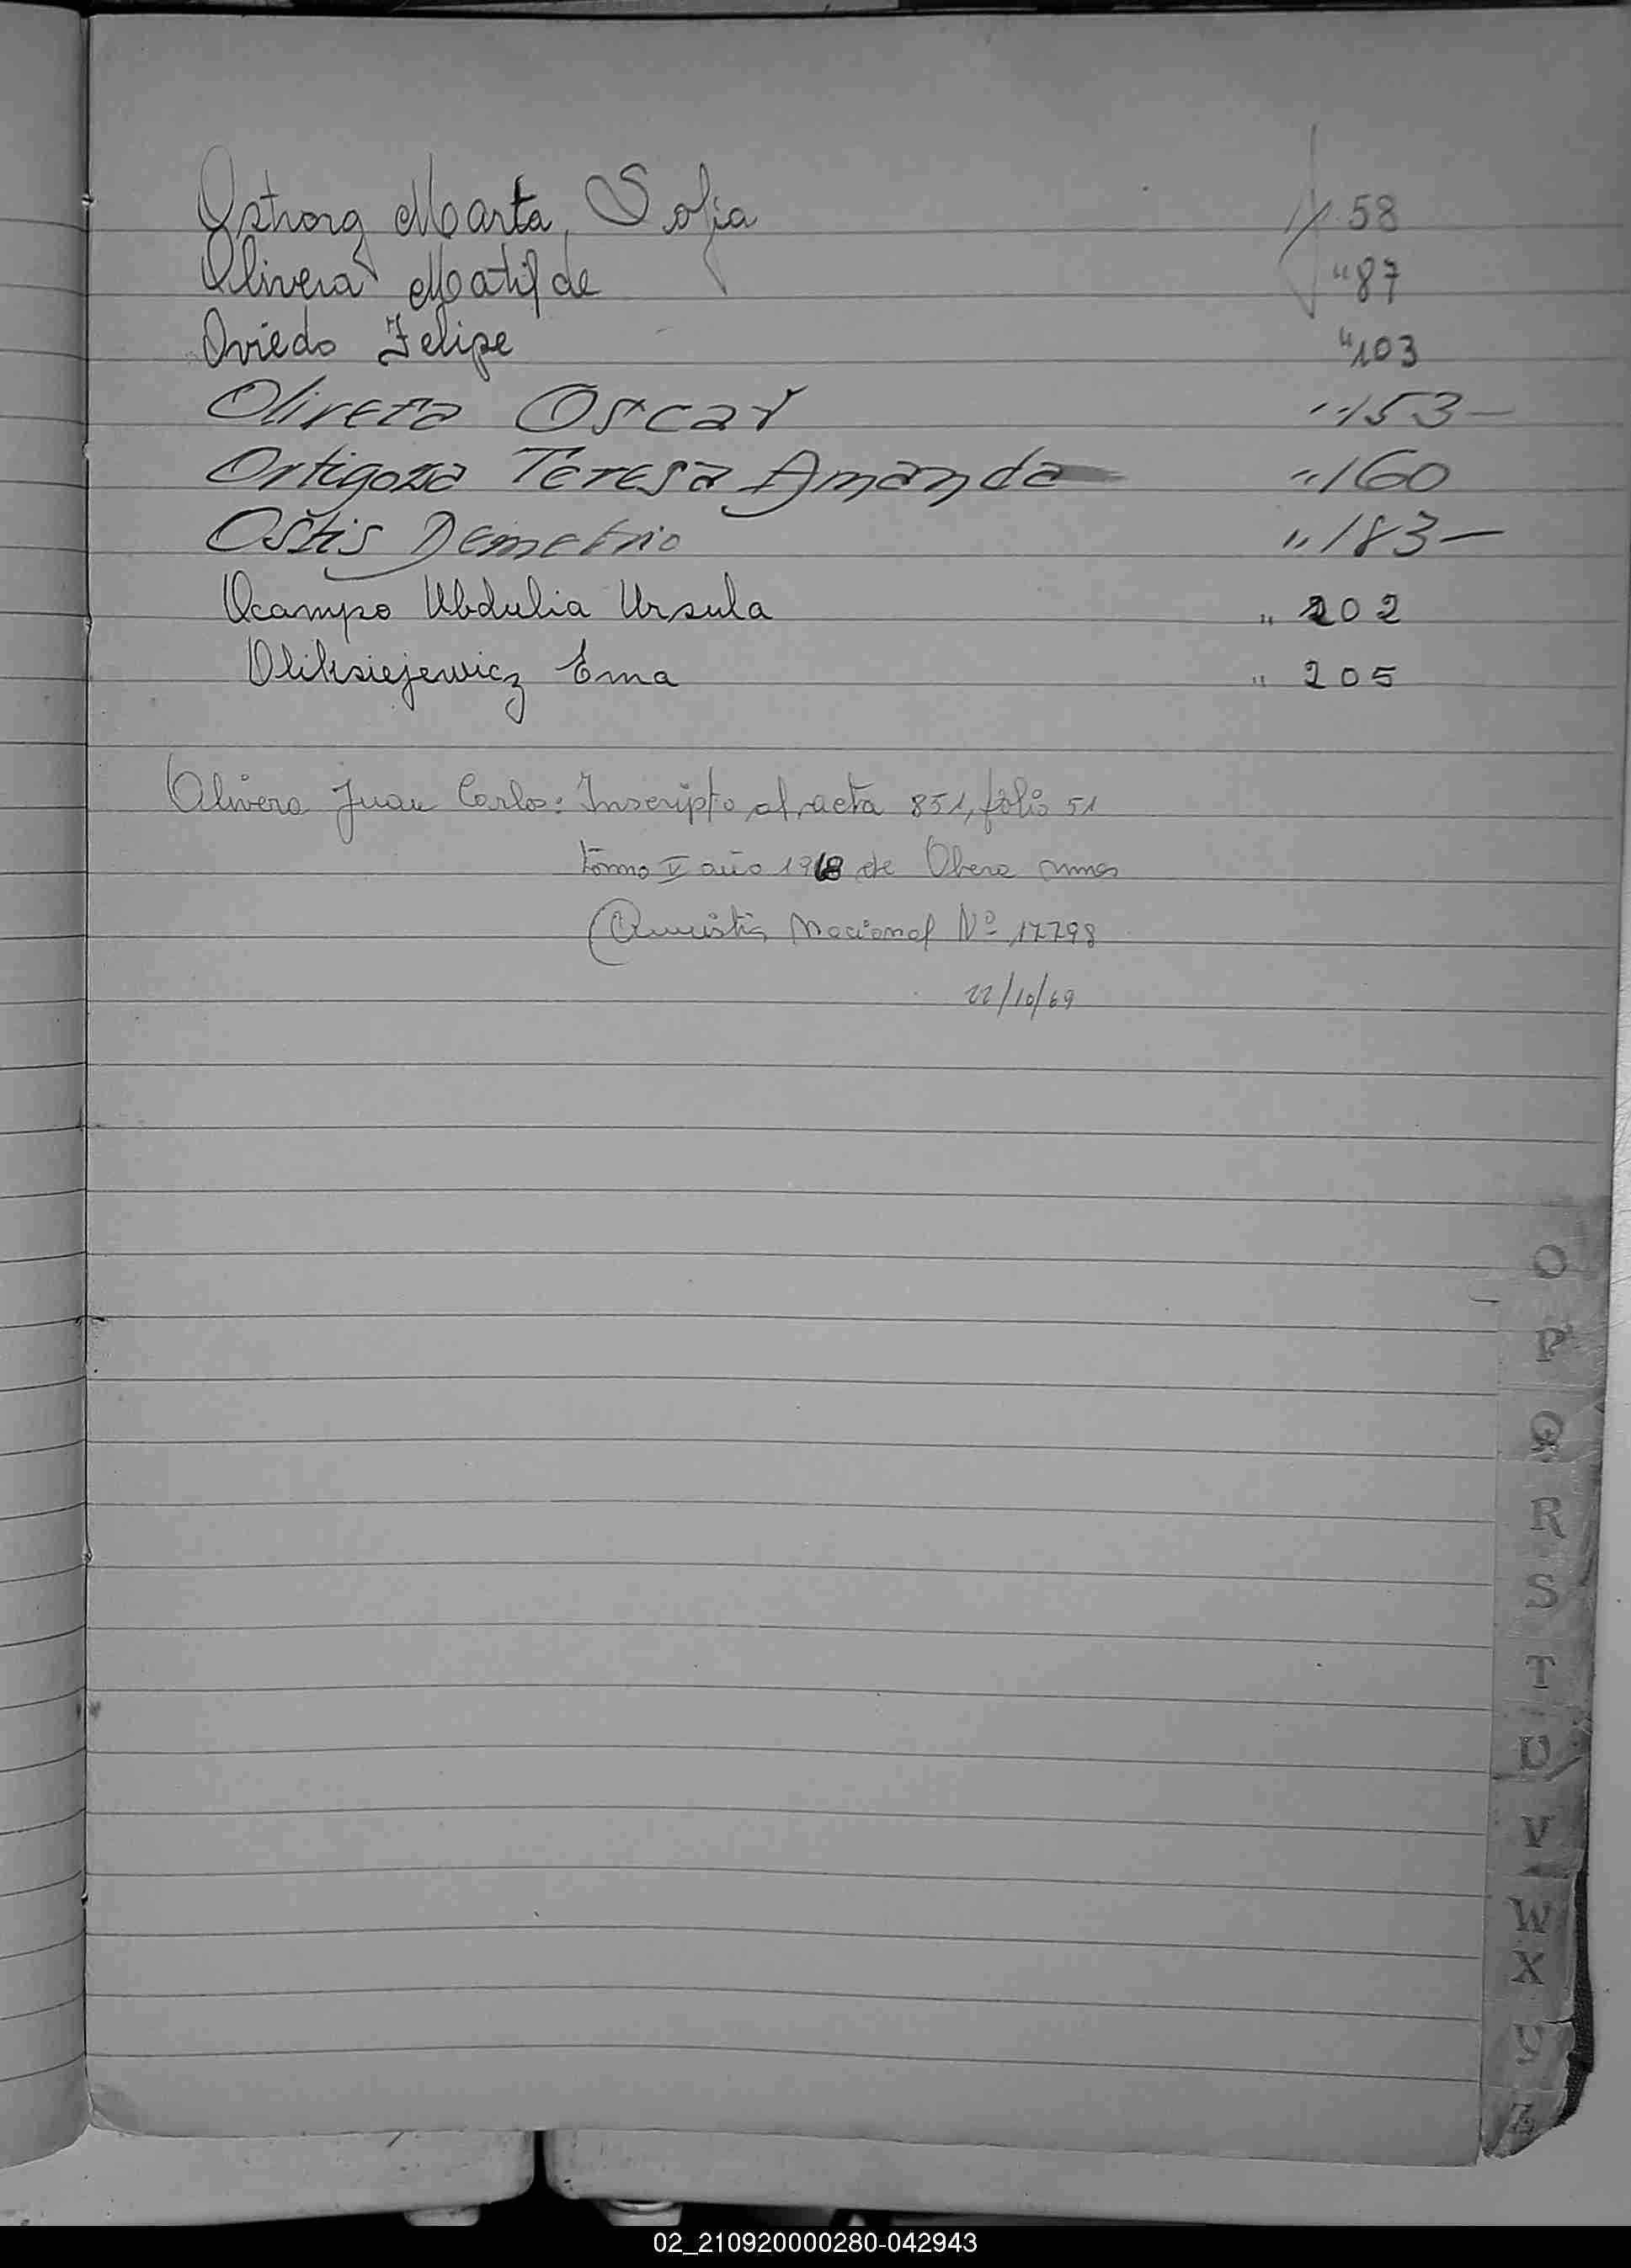 Ostrorg Marta, Sofia f. 58
Olivera Matilde " 87
Oviedo Felipe " 103
Olivera Oscar " 153 —
Ortigoza Teresa Amanda " 160
Ostis Demetrio " 183 —
Ocampo Ubdulia Ursula " 202
Oliksiejewicz Ema " 205
Olivera Juan Carlos: Inscripto al acta 851, folio 51
tomo V año 1968 de Obera Mnes
(Amnistia Nacional Nº 17798
22/10/69
O
P
Q
R
S
T
U
V
W
X
Z
02_210920000280-042943